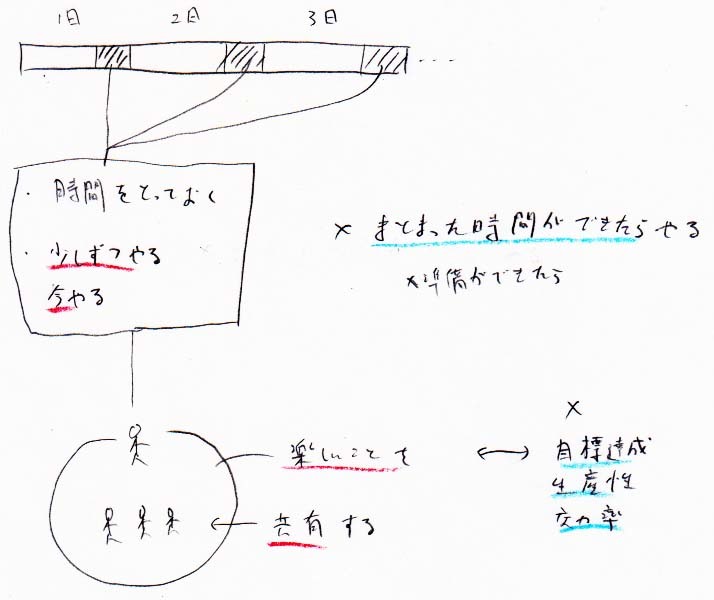 1日 2日 3日
・時間をとっておく
・少しずつやる
今やる
× まとまった時間ができたらやる
×準備ができたら
楽しいことを
共有する
×
目標達成
生産性
効率